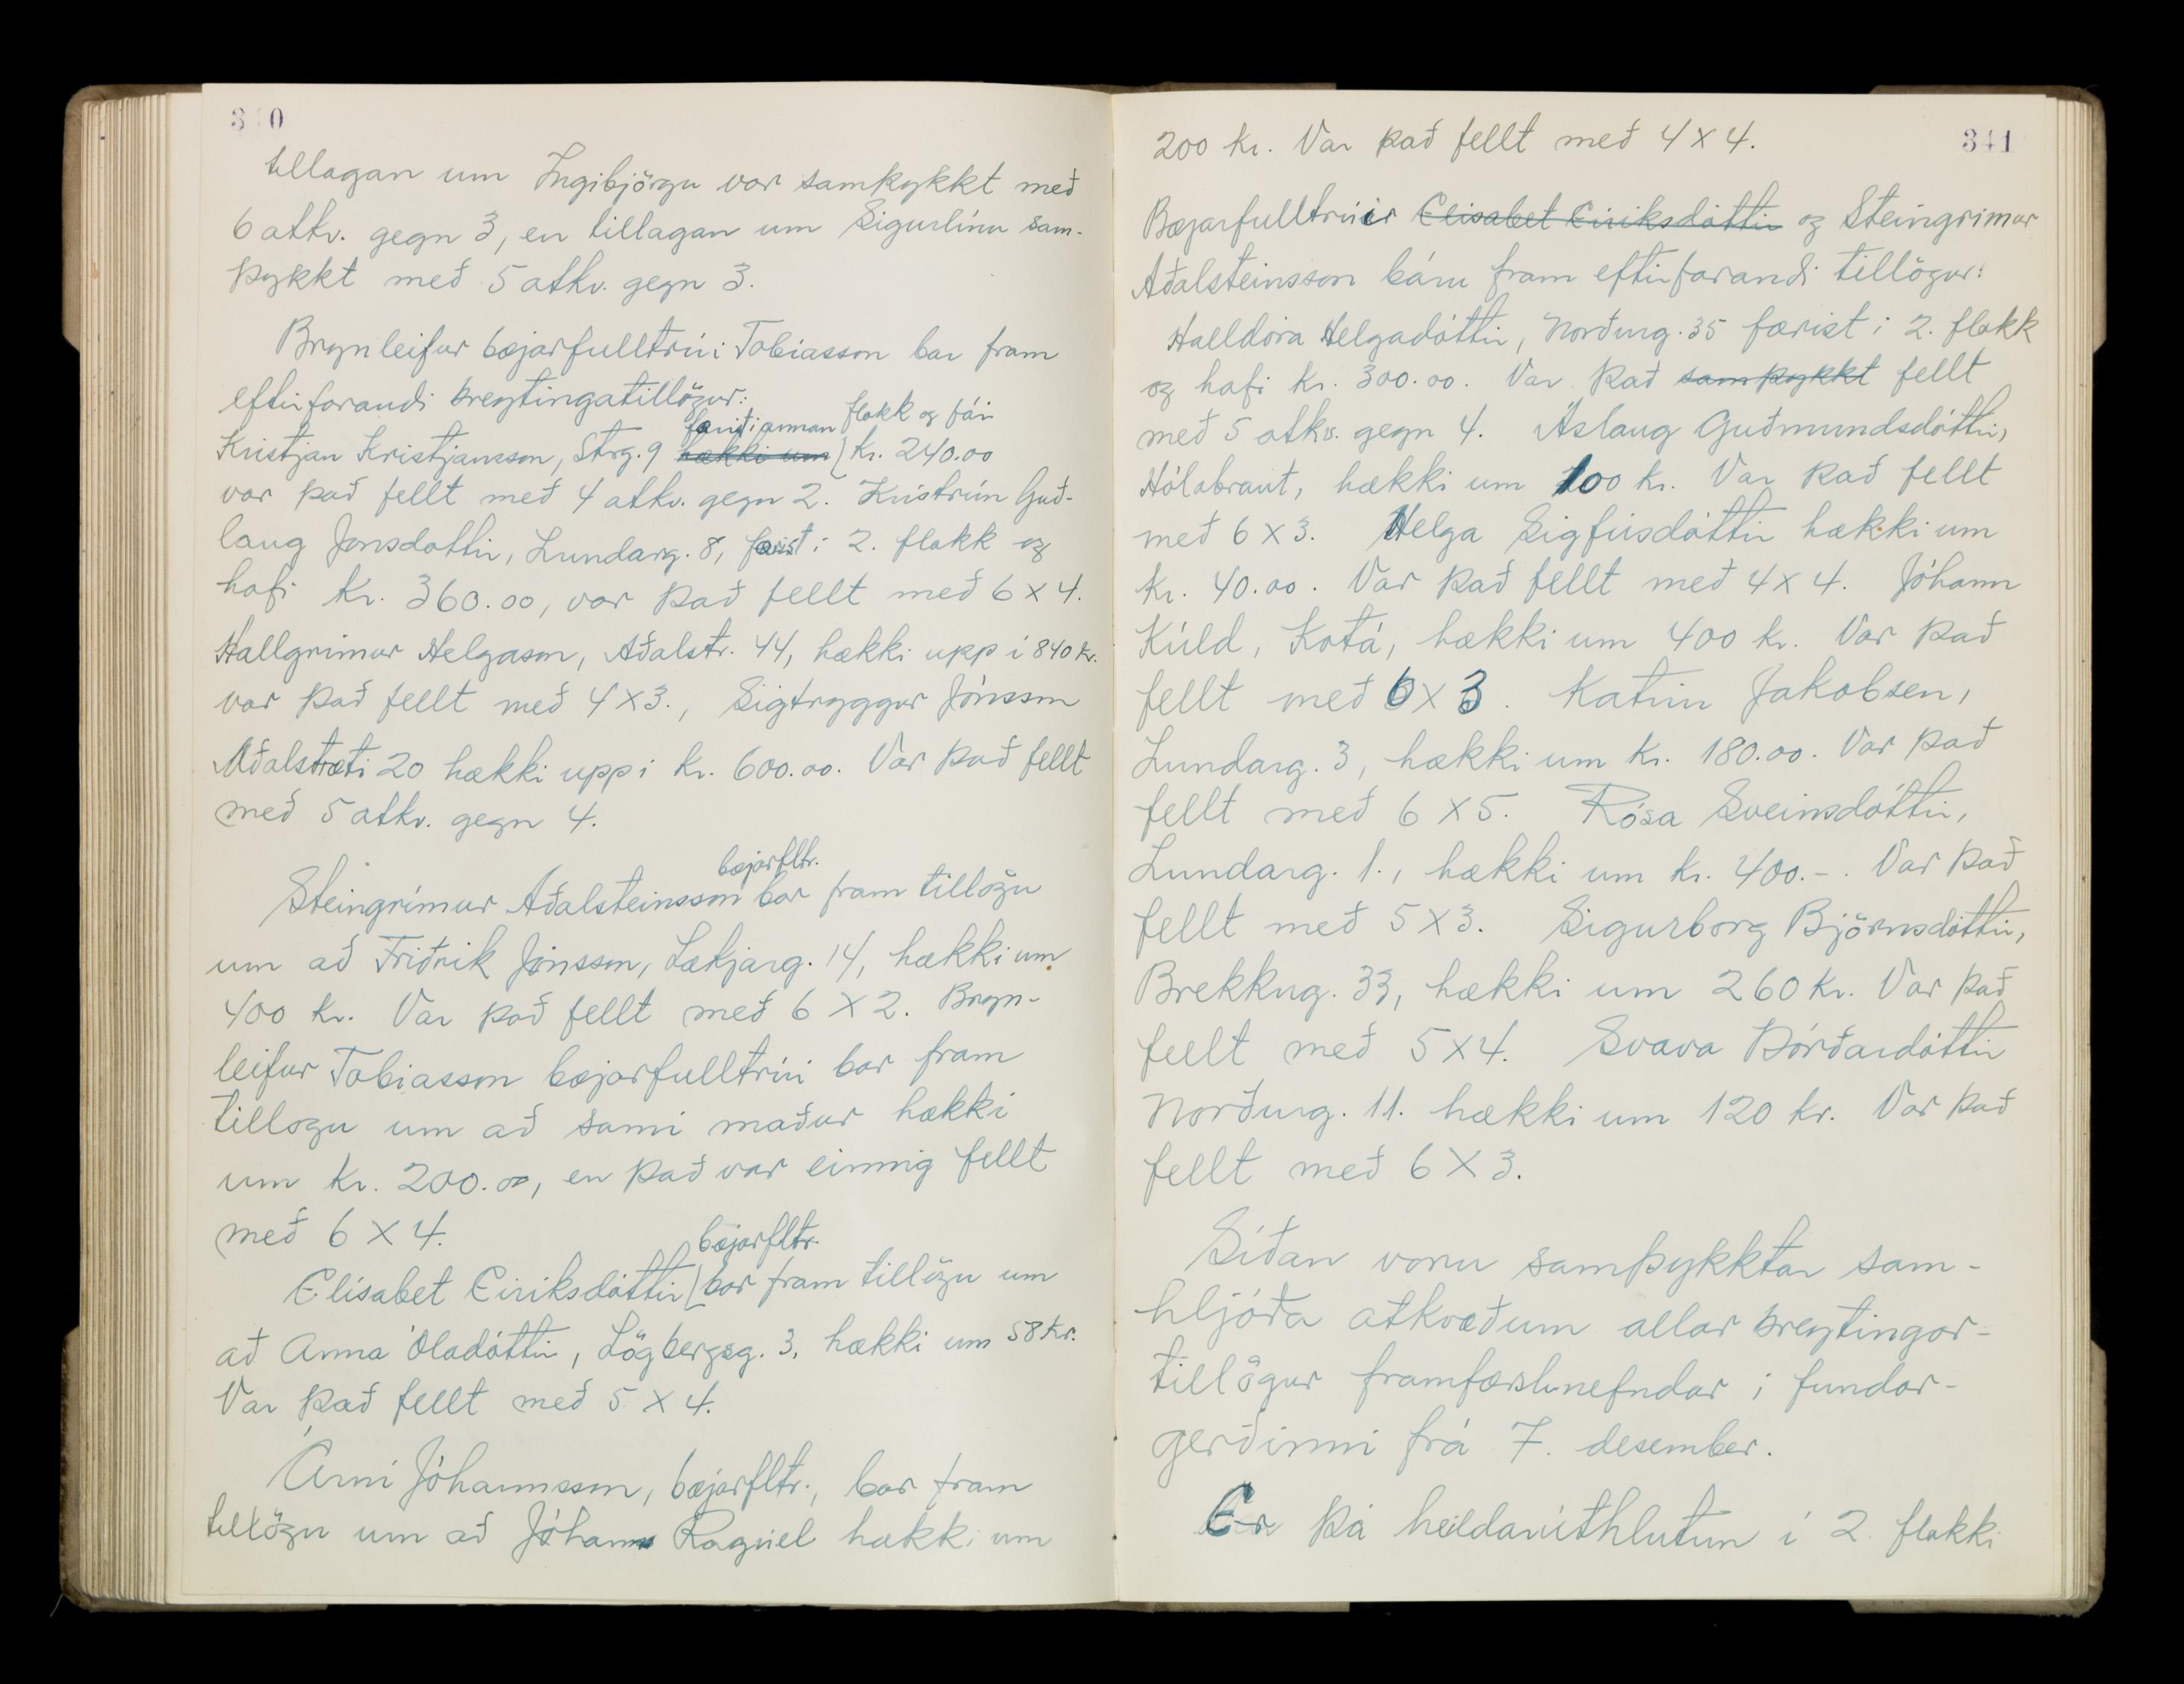 340
tillagan um Ingibjörgu var samþykkt með
6 atkv. gegn 3, en tillagan um Sigurlínu sam-
þykkt með 5 atkv. gegn 3.
Brynleifur bæjarfulltrúi Tobiasson bar fram
eftirfarandi breytingatillögur:
færist i annan flokk og fái
Kristjan Kristjansson, Strg. 9 hækki um kr. 240.00
var það fellt með 4 atkv. gegn 2. Kristrún Guð-
laug Jonsdottir, Lundarg. 8, færist i 2. flokk og
hafi kr. 360.00, var það fellt með 6 x 4.
Hallgrimur Helgason, Aðalstr. 44, hækki upp í 840 kr.
var það fellt með 4 x 3., Sigtryggur Jónsson
Aðalstræti 20 hækki upp i kr. 600.00. Var það fellt
með 5 atkv. gegn 4.
bæjarfltr.
Steingrímur Aðalsteinsson bar fram tillögu
um að Friðrik Jónsson, Lækjarg. 14, hækki um
400 kr. Var það fellt með 6 x 2. Bryn-
leifur Tobiasson bæjarfulltrúi bar fram
tillogu um að sami maður hækki
um kr. 200.00, en það var einnig fellt
með 6 x 4.
bæjarfltr.
Elísabet Eiriksdóttir bar fram tillögu um
að Anna Óladóttir, Lögbergsg. 3, hækki um 58 kr.
Var það fellt með 5 x 4.
Árni Jóhannsson, bæjarfltr., bar fram
tillögu um að Jóhann Ragúel hækki um
341
200 kr. Var það fellt með 4 x 4.
Bæjarfulltrúir Elisabet Eiriksdóttir og Steingrimur
Aðalsteinsson báru fram eftirfarandi tillögur:
Halldóra Helgadóttir, Norðurg. 35 færist i 2. flokk
og hafi kr. 300.00. Var það samþykkt fellt
með 5 atkv. gegn 4. Áslaug Guðmundsdóttir,
Hólabraut, hækki um 100 kr. Var það fellt
með 6 x 3. Helga Sigfúsdóttir hækki um
kr. 40.00. Var það fellt með 4 x 4. Jóhann
Kúld, Kotá, hækki um 400 kr. Var það
fellt með 6 x 3. Katrin Jakobsen,
Lundarg. 3, hækki um kr. 180.00. Var það
fellt með 6 x 5. Rósa Sveinsdóttir,
Lundarg. 1., hækki um kr. 400.-. Var það
fellt með 5 x 3. Sigurborg Björnsdóttir,
Brekkug. 33, hækki um 260 kr. Var það
fellt með 5 x 4. Svava Þórðardóttir
Norðurg. 11. hækki um 120 kr. Var það
fellt með 6 x 3.
Síðan voru samþykktar sam-
hljóða atkvæðum allar breytingar-
tillögur framfærslunefndar i fundar-
gerðinni frá 7. desember.
Er þá heildarúthlutun í 2. flokki